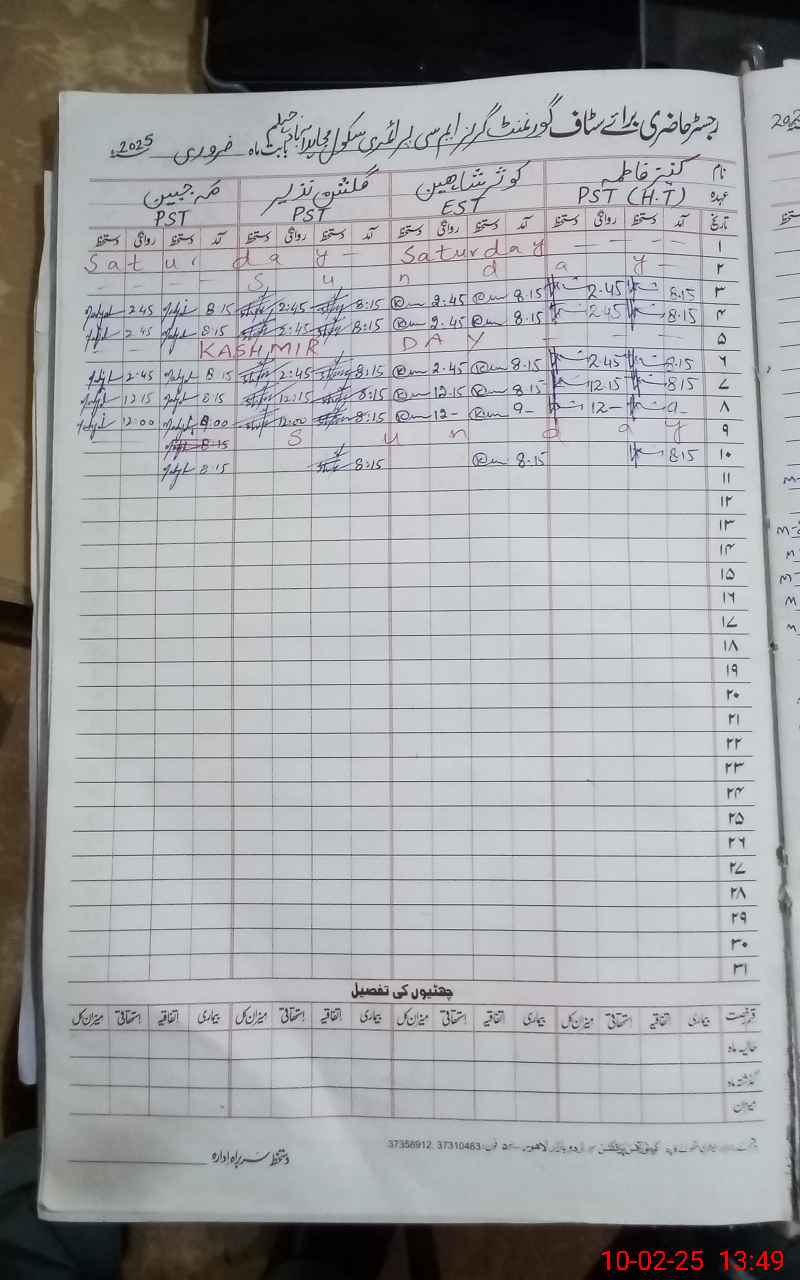 رجسٹر حاضری برائے سٹاف گورنمنٹ گرلز ایم سی پرائمری سکول مجاہد آباد جہلم بابت ماہ فروری 2025ء
نام کنیز فاطمہ کوثر شاہین گلشن نذیر مہ جبین
عہدہ PST (H.T) EST PST PST
تاریخ آمد دستخط روانگی دستخط آمد دستخط روانگی دستخط آمد دستخط روانگی دستخط آمد دستخط روانگی دستخط
۱ Saturday Saturday
۲ Sunday
۳ 8.15 2.45 8.15 2.45 8:15 2:45 8:15 2:45
۴ 8.15 2.45 8.15 2.45 8:15 2:45 8:15 2.45
۵ KASHMIR DAY
۶ 8.15 2.45 8.15 2.45 8:15 2:45 8:15 2.45
۷ 8.15 12.15 8.15 12.15 8:15 12:15 8:15 12:15
۸ 9- 12- 9- 12- 8:15 12:00 9:00 12:00
۹ Sunday 8:15
۱۰ 8.15 8.15 8:15 8:15
۱۱
۱۲
۱۳
۱۴
۱۵
۱۶
۱۷
۱۸
۱۹
۲۰
۲۱
۲۲
۲۳
۲۴
۲۵
۲۶
۲۷
۲۸
۲۹
۳۰
۳۱
چھٹیوں کی تفصیل
قسم رخصت بیماری اتفاقیہ استحقاقی میزان کل بیماری اتفاقیہ استحقاقی میزان کل بیماری اتفاقیہ استحقاقی میزان کل بیماری اتفاقیہ استحقاقی میزان کل
حالیہ ماہ
گذشتہ ماہ
میزان
اردو بازار لاہور فون: 37310483 ,37358912
دستخط سربراہ ادارہ
10-02-25 13:49